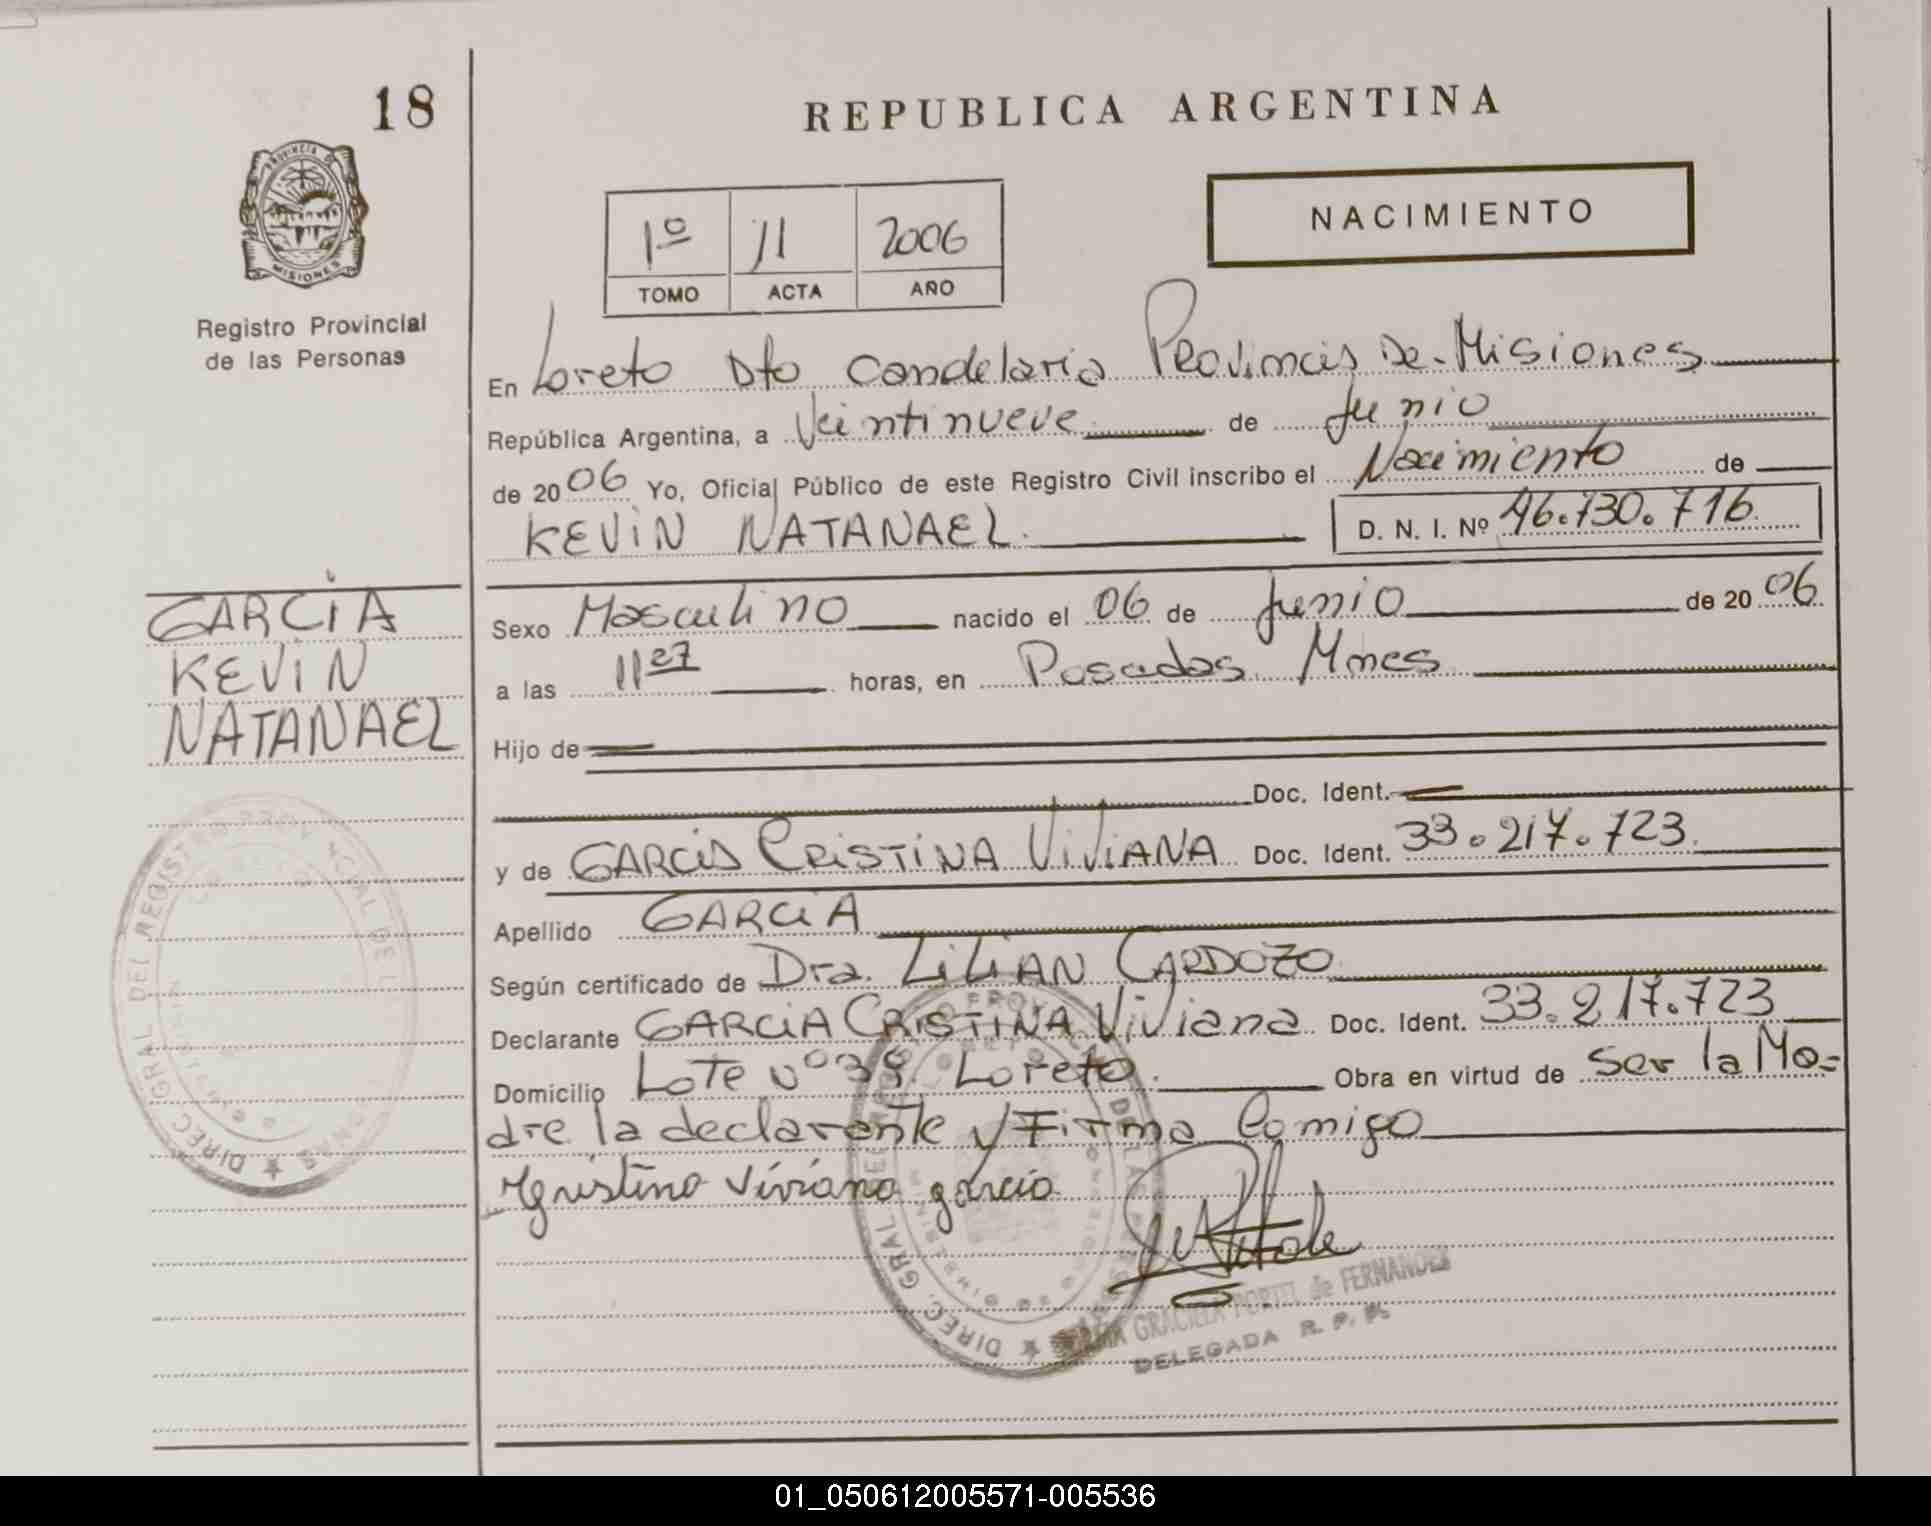 18
REPUBLICA ARGENTINA
PROVINCIA DE
MISIONES
Registro Provincial
de las Personas
1º 11 2006
TOMO ACTA AÑO
NACIMIENTO
En Loreto Dto Candelaria Provincia De Misiones
República Argentina, a Veintinueve de Junio
de 2006 Yo, Oficial Público de este Registro Civil inscribo el Nacimiento de
KEVIN NATANAEL. D. N. I. Nº 46.730.716
GARCIA
KEVIN
NATANAEL
Sexo Masculino nacido el 06 de Junio de 2006
a las 11 27 horas, en Posadas Mnes
Hijo de
Doc. Ident.
y de GARCIA CRISTINA ViViANA Doc. Ident. 33.217.723.
Apellido GARCIA
Según certificado de Dra. LILIAN CARDOZO
Declarante GARCIA CRISTINA Viviana Doc. Ident. 33.217.723
Domicilio Lote nº 38. Loreto. Obra en virtud de Ser la Ma=
dre la declarante y Firma Comigo
Cristina Viviana garcia
DIREC. GRAL DEL REGISTRO PROVINCIAL DE
DIREC. GRAL DEL
LORETO
GRACIELA PORTIL de FERNANDEZ
DELEGADA R. P. P.
01_050612005571-005536